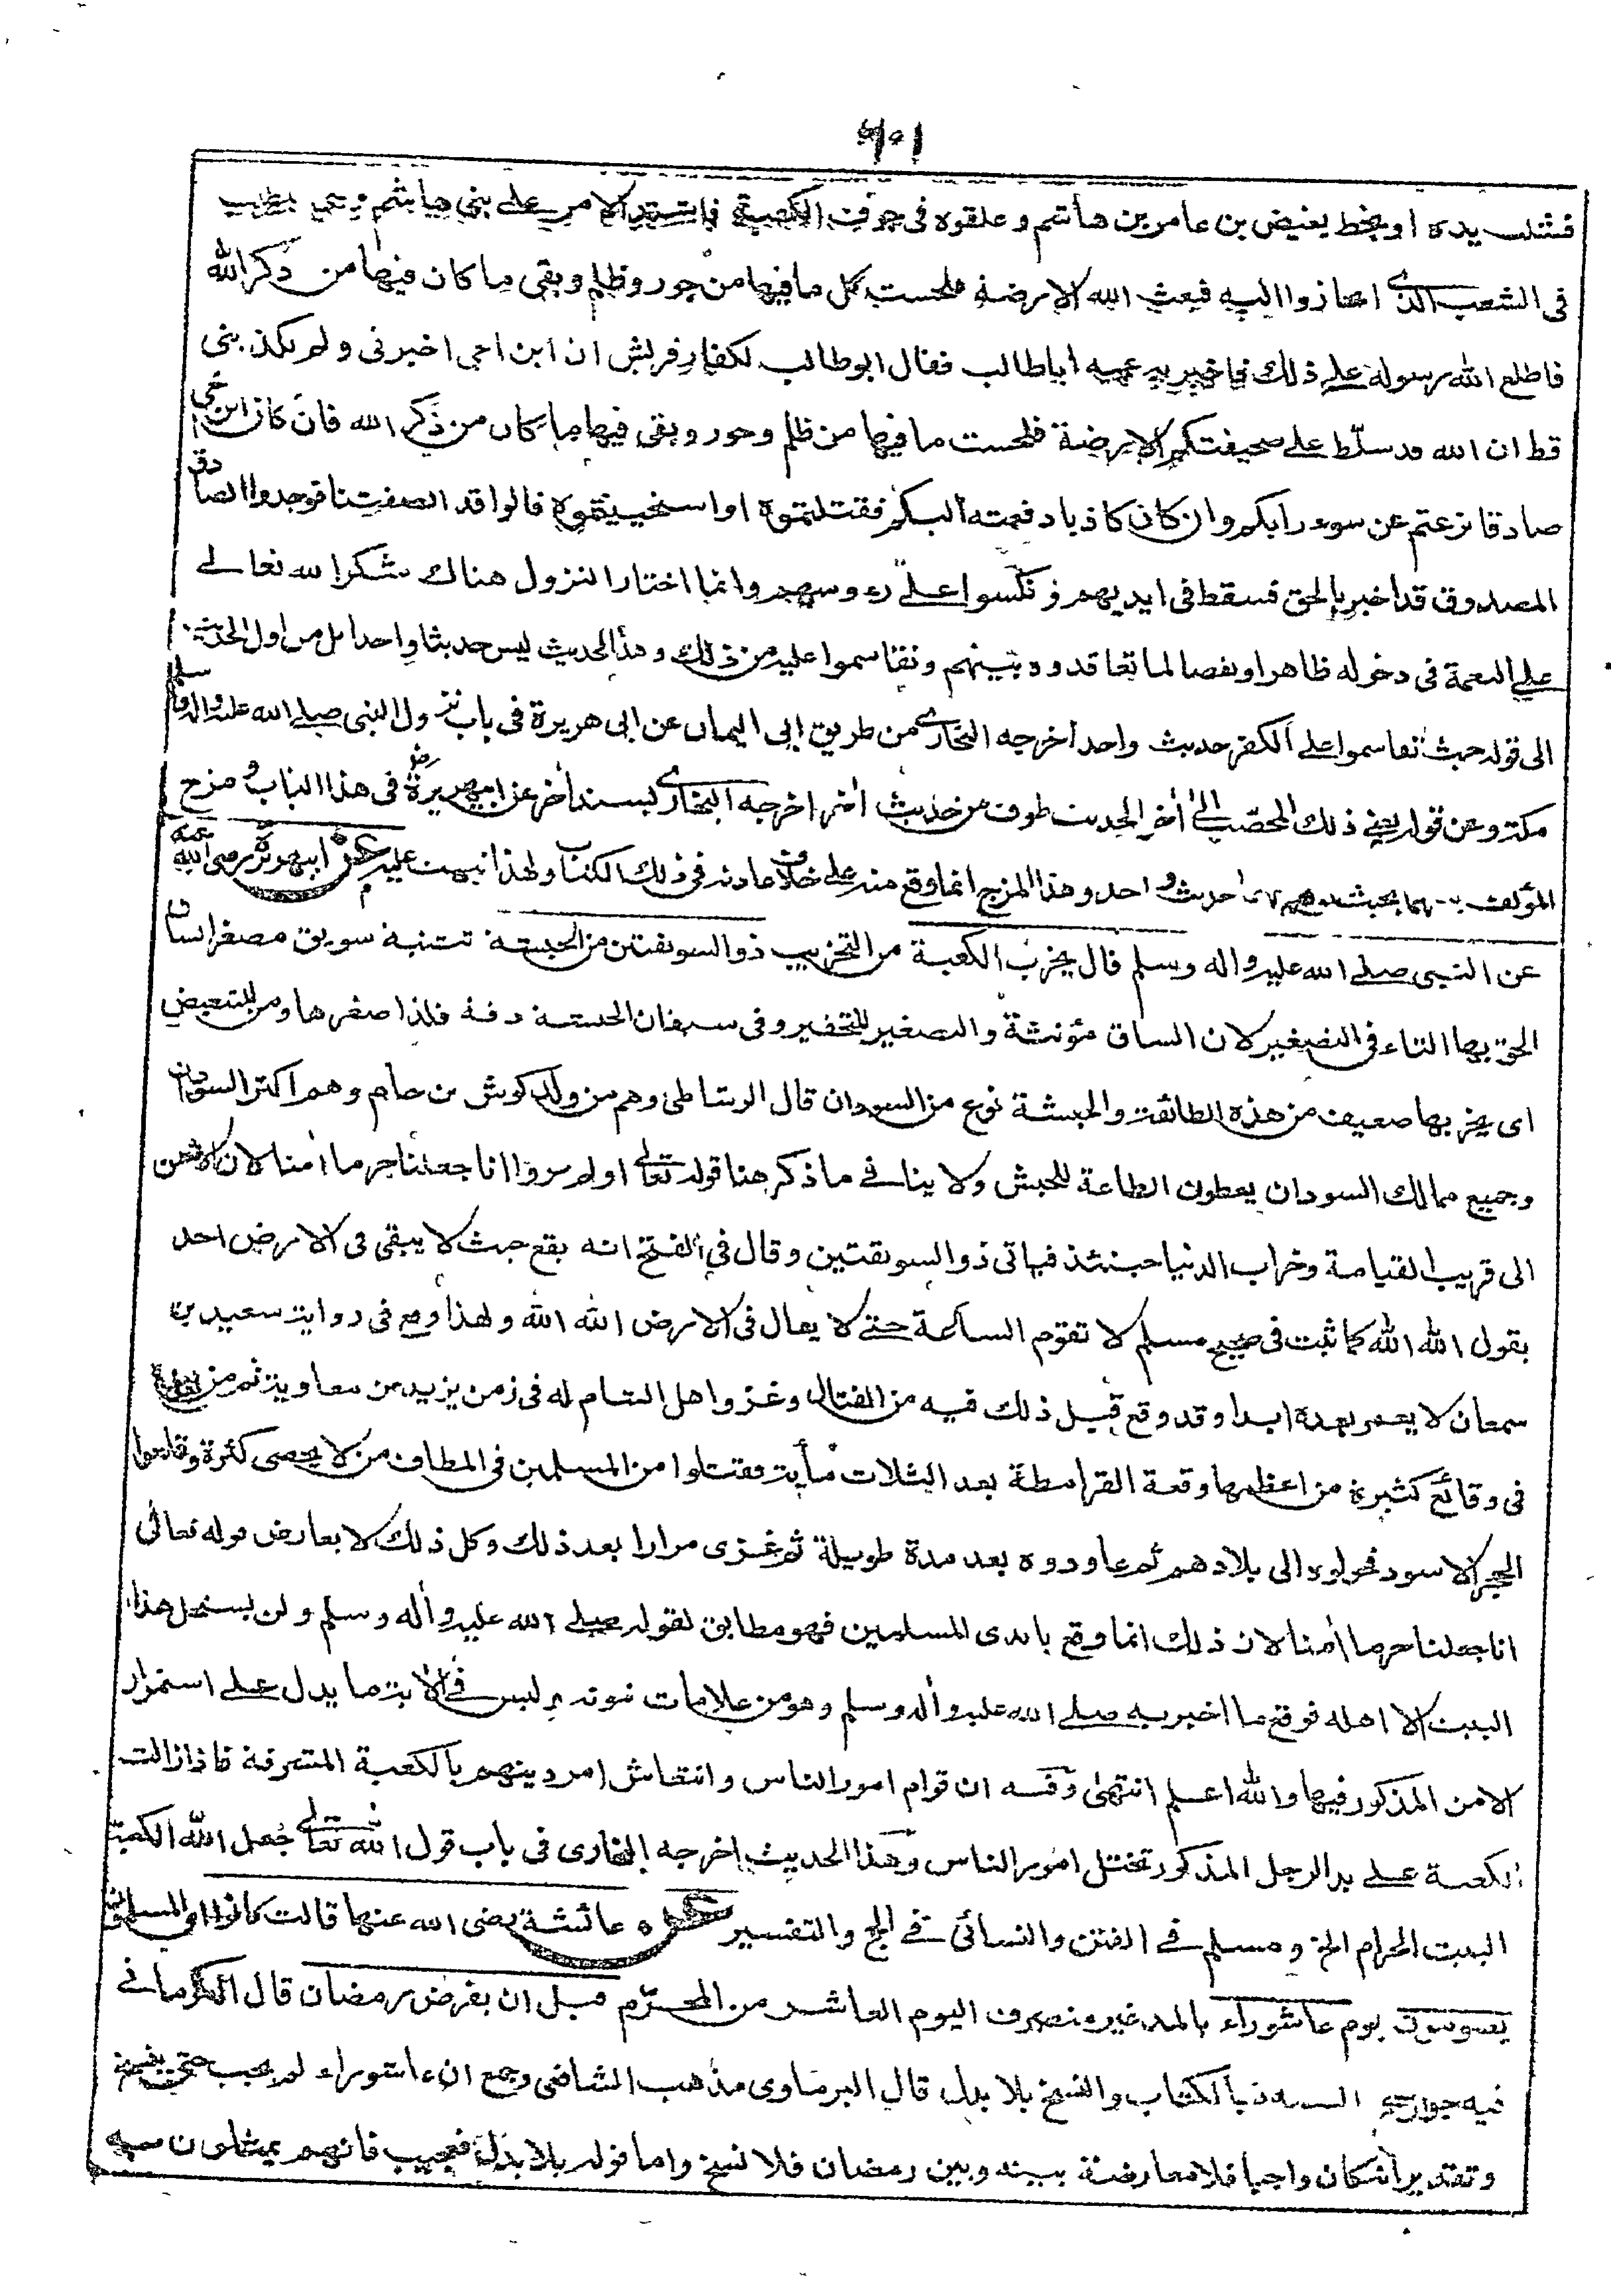 فشلت يده او بخط بغيض بن عامر بن هاشم وعلقوه في جوف الكعبة فاشتد الامر على بني هاشم
في الشعب الذى انحازوا اليه فبعث الله الارضة فلحست كل ما فيها من جور وظلم وبقى ما كان فيها من ذكر الله
فاطلع الله رسوله على ذلك فاخبر به عمه أبا طالب فقال ابو طالب لكفار قريش ان ابن اخى اخبرنى ولم يكذبنى
قط ان الله قد سلّط على صحيفتكم الارضة فلحست ما فيها من ظلم وجور وبقى فيها ما كان من ذكر الله فان كان ابن اخى
صادقا نزعتم عن سوء رأيكم وان كان كاذبا دفعته اليكم فقتلتموه او استحييتموه قالوا قد انصفتنا فوجدوا الصادق
المصدوق قد اخبر بالحق فسقط فى ايديهم ونكسوا على رءوسهم وانما اختار النزول هناك شكرا لله تعالى
على النعمة فى دخوله ظاهرا ونقضا لما تعاقدوه بينهم وتقاسموا عليه من ذلك وهذا الحديث ليس حديثا واحدا بل من اول الحديث
الى قوله حيث تقاسموا على الكفر حديث واحد أخرجه البخارى من طريق ابى اليمان عن ابى هريرة فى باب نزول النبى صلى الله عليه واله وسلم
مكة ومن قوله يعنى ذلك المحصّب الى أخر الحديث طرف من حديث أخر اخرجه البخارى بسند أخر عن ابى هريرة رض فى هذا الباب ومزج
المؤلف حديث واحد وهذا المزج انما وقع منه على خلاف عادته فى ذلك الكتاب ولهذا نبهت عليه عن ابى هريرة رضى الله عنه
عن النبى صلى الله عليه واله وسلم قال يخرب الكعبة من التخريب ذو السويقتين من الحبشة تثنية سويق مصغر الساق
الحق بها التاء فى التصغير لان الساق مؤنثة والتصغير للتحقير وفى سيقان الحبشة دقة فلذا صغرها ومن للتبعيض
اى يخربها ضعيف من هذه الطائفة والحبشة نوع من السودان قال الرشاطى وهم من ولد كوش بن حام وهم اكثر السودان
وجميع ممالك السودان يعطون الطاعة للحبش ولا ينافى ما ذكر هنا قوله تعالى اولم يروا انا جعلنا حرما أمنا لان الامن
الى قريب القيامة وخراب الدنيا حينئذ فياتى ذو السويقتين وقال فى الفتح انه يقع حيث لا يبقى فى الارض احد
يقول الله الله كما ثبت فى صحيح مسلم لا تقوم الساعة حتى لا يقال فى الارض الله الله ولهذا وقع فى رواية سعيد بن
سمعان لا يعمر بعده ابدا وقد وقع قبل ذلك فيه من القتال وغزو اهل الشام له فى زمن يزيد بن معاوية ثم من بعده
فى وقائع كثيرة من اعظمها وقعة القرامطة بعد الثلاث مأية فقتلوا من المسلمين فى المطاف من لا يحصى كثرة وقلعوا
الحجر الاسود فحولوه الى بلادهم ثم عاودوه بعد مدة طويلة ثم غزى مرارا بعد ذلك وكل ذلك لا يعارض قوله تعالى
انا جعلنا حرما أمنا لان ذلك انما وقع بايدى المسلمين فهو مطابق لقوله صلى الله عليه وأله وسلم ولن يستحل هذا
البيت الا اهله فوقع ما اخبر به صلى الله عليه وأله وسلم وهو من علامات نبوته وليس فى الاية ما يدل على استمرار
الامن المذكور فيها والله اعلم انتهى وفيه ان قوام امور الناس وانتعاش امر دينهم بالكعبة المشرفة فاذا زالت
الكعبة على يد الرجل المذكور تختل امور الناس وهذا الحديث اخرجه البخارى فى باب قول الله تعالى جعل الله الكعبة
البيت الحرام الخ ومسلم فى الفتن والنسائى فى الحج والتفسير عن عائشة رضى الله عنها قالت كانوا اى المسلمون
يصومون يوم عاشوراء بالمد غير منصرف اليوم العاشر من المحرّم قبل ان يفرض رمضان قال الكرمانى
فيه جواز نسخ السنة بالكتاب والنسخ بلا بدل قال البرماوى مذهب الشافعى وجمع ان عاشوراء لم يجب حتى
وتقدير أنه كان واجبا فلا معارضة بينه وبين رمضان فلا نسخ واما قوله بلا بدل فعجيب فانهم يمثلون